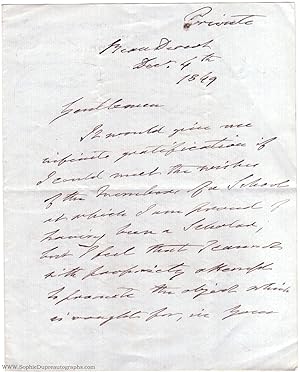 Private
Beau Desert
Dec. 4th
1849
Gentlemen
It would give me
infinite gratification if
I could meet the wishes
of the Members of a School
at which I am proud of
having been a Scholar,
but I feel that I cannot
with propriety attempt
to promote the object which
is sought for, in your
www.SophieDupreautographs.com